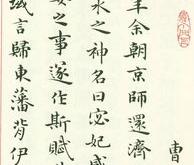 曹
年余朝京師還濟
水之神名曰宓妃感
女之事遂作斯賦
域言歸東藩背伊